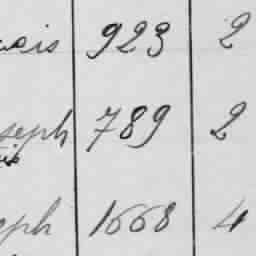 923 2
seph 789 2
eph 1668 4